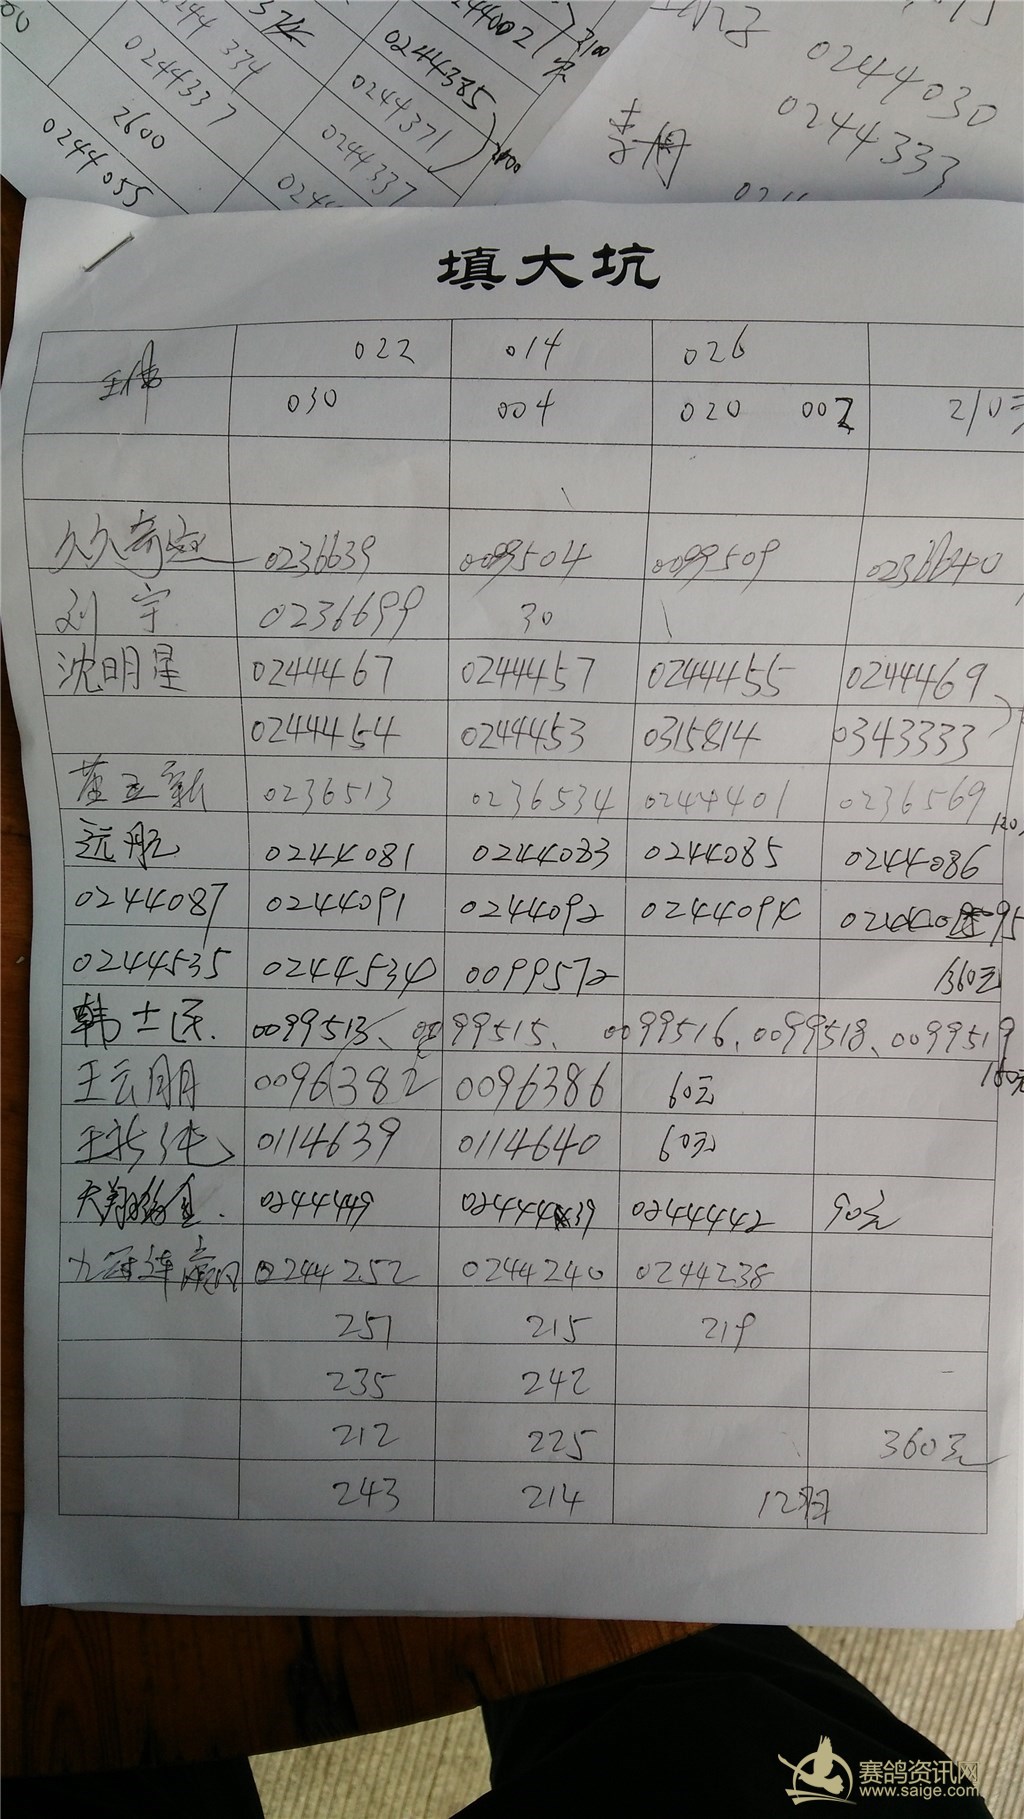 0244002 2100
0244385
0244371
0244334
0244337
0244337
2600
0244055
0244030
0244333
填大坑
王伟 022 014 026
030 004 020 002 210元
久久奇 0236639 0099504 0099509
刘宇 0236699 30
沈明星 0244467 0244457 0244455 0244469
0244454 0244453 0315814 0343333
董立新 0236513 0236534 0244401 0236569
120
远航 0244081 0244083 0244085 0244086
0244087 0244091 0244092 0244094 95
0244535 0244534 0099572 360元
韩士民. 0099513、0099515、0099516、0099518、0099519
王云朋 0096382 0096386 60元
0114639 0114640 60元
天翔 0244449 02444439 0244442 90元
九冠连赢 0244252 0244240 0244238
251 215 219
235 242
212 225 360元
243 214 12羽
赛鸽资讯网
www.saige.com